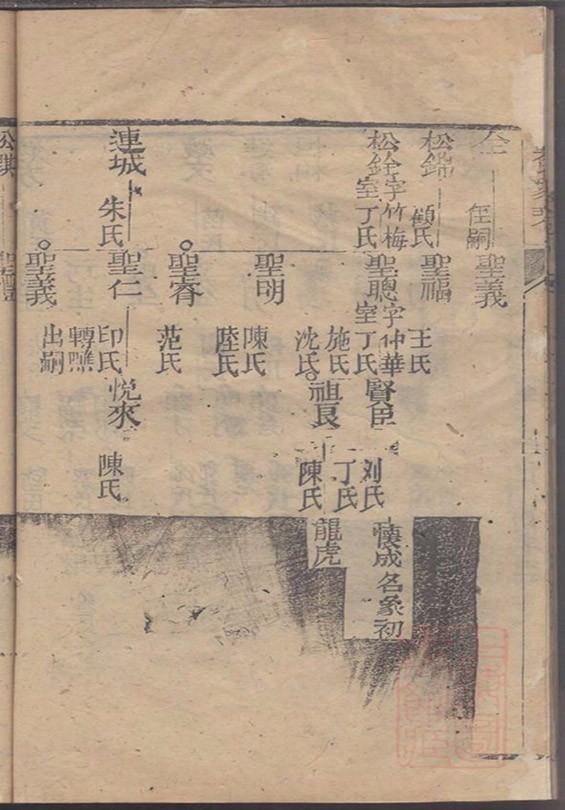 仝
侄嗣
聖義
松錦
顧氏
聖福
王氏
松銓字竹梅
室丁氏
聖聰字仲華
室丁氏
施氏
沈氏
賢臣
刘氏
丁氏
懷成名象初
祖良
陳氏
龍虎
聖明
陳氏
陸氏
聖睿
范氏
連城
朱氏
聖仁
印氏
轉醮
悅來
陳氏
聖義
出嗣